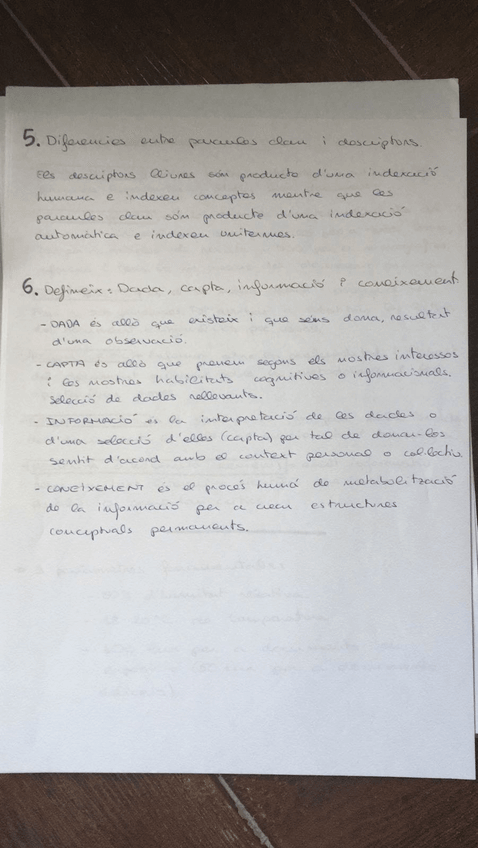 5. Diferencies entre paraules clau i descriptors.
Els descriptors lliures són producte d'una indexació
humana e indexen conceptes mentre que les
paraules clau són producte d'una indexació
automàtica e indexen unitermes.
6. Defineix: Dada, capta, informació i coneixement
- DADA és allò que existeix i que se'ns dona, resultat
d'una observació.
- CAPTA és allò que prenem segons els nostres interessos
i les nostres habilitats cognitives o informacionals.
Selecció de dades rellevants.
- INFORMACIÓ és la interpretació de les dades o
d'una selecció d'elles (capta) per tal de donar-los
sentit d'acord amb el context personal o col·lectiu.
- CONEIXEMENT és el procés humà de metabolització
de la informació per a crear estructures
conceptuals permanents.